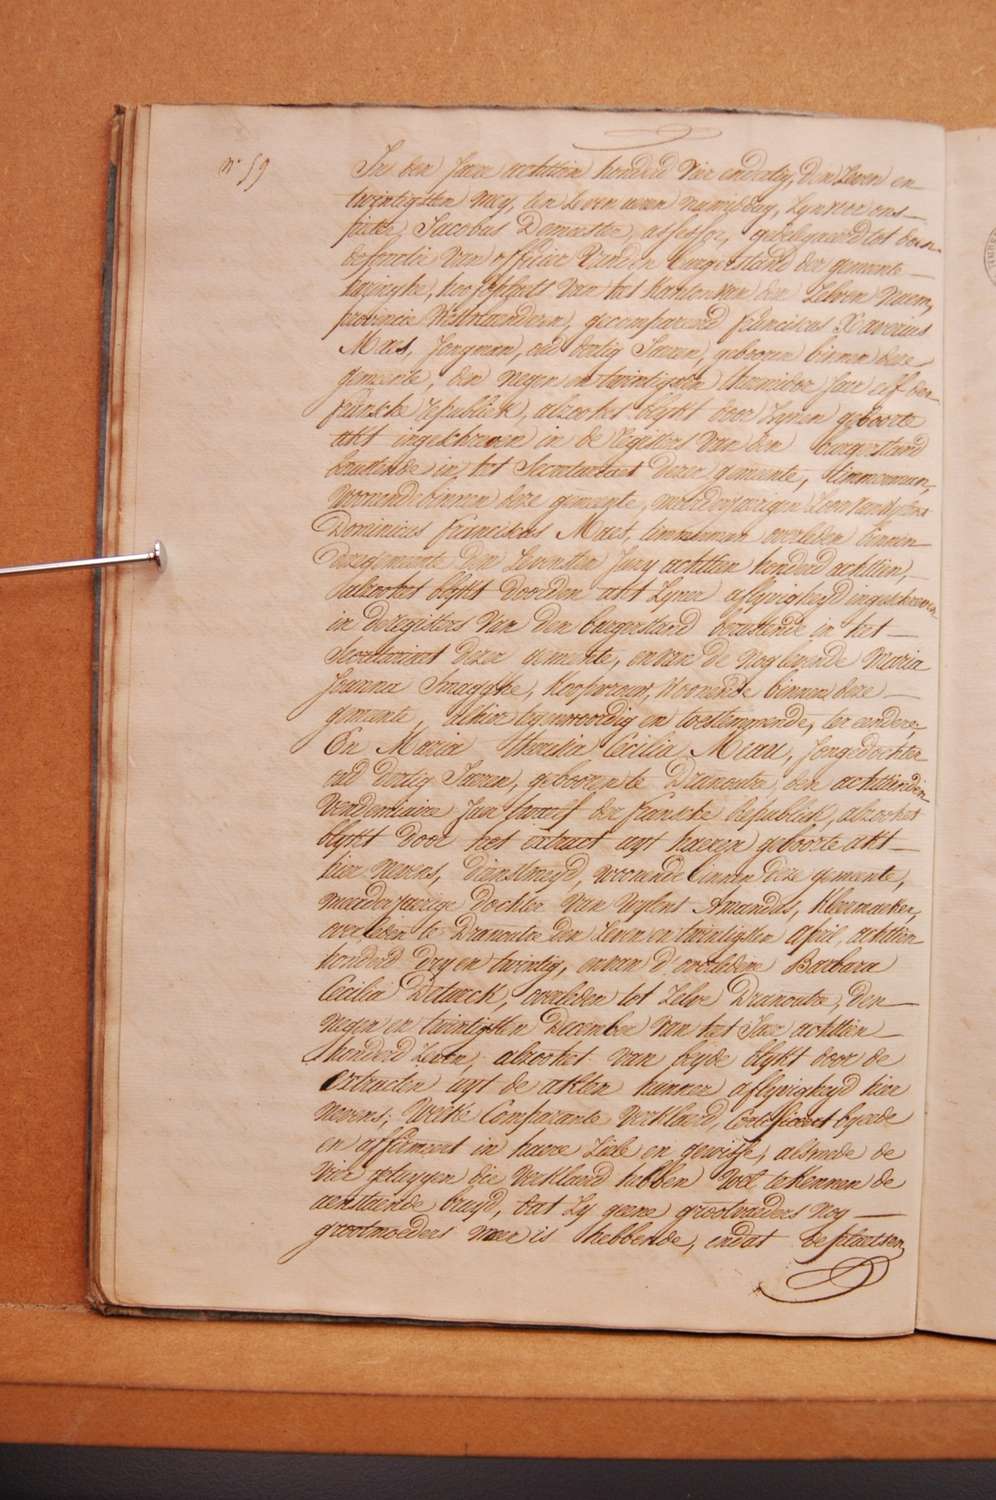 N.° 59
In den Jaer achttien honderd vier en dertig, den zeven en
twintigsten mey, ten zeven uren nanoiddag, zyn voor ons
Jacobus Demeester, assessor, gedelegueerd tot de
befunctie van officier van den burgerstand der gemeente
hoofdplaets van het kanton van den
provincie Westvlaenderen, gecompareerd franciscus Xaverius
Maes, Jongman, oud dertig Jaeren, gebooren binnen deze
gemeente, den negen en twintigsten Jaer elf der
fransche republiek, alzoo het blykt door zynen geboorte
akt ingeschreven in de registers van den burgerstand
berustende in het secretariaet dezer gemeente, timmerman,
woonende binnen deze gemeente, meerderjaerigen zoon van wylens
Dominicus franciscus Maes, timmerman overleden binnen
deze gemeente den zeventien Juny achttien honderd achttien,
alzoo het blykt door den akt zyner aflyvigheyd ingeschreven
in de registers van den burgerstand berustende in het
secretariaet dezer gemeente, en van de nog levende Maria
Joanna Smagghe, koopvrouw, woonende binnen deze
gemeente, alhier tegenwoordig en toestemmende, ter eendere,
En Maria Theresia Cecilia Menu, Jongedochter
oud dertig Jaeren, gebooren te Dranoutre, den achttienden
vendemiaire Jaer twaelf der fransche republiek, alzoo het
blykt door het extract uyt haeren geboorte akt
hier nevens, dienstmeyd, woonende binnen deze gemeente,
meerderjaerige dochter van wylens Amandus, kleermaeker,
overleden te Dranoutre den zeven en twintigsten april, achttien
honderd dry en twintig, en van d'overledene Barbara
Cecilia Deturck, overleden tot zelve Dranoutre, den
negen en twintigsten December van het Jaer achttien
honderd zeven, alzoo het van beyde blykt door de
extracten uyt de akten hunner aflyvigheyd hier
nevens, welke Comparante verklaerd, certificeert by eede
en affirmeert in haere ziele en gewisse, alsmede de
vier getuygen die verklaerd hebben wel te kennen de
aenstaende bruyd, dat zy geene grootvaders nog
grootmoeders meer is hebbende, en dat de plaetsen